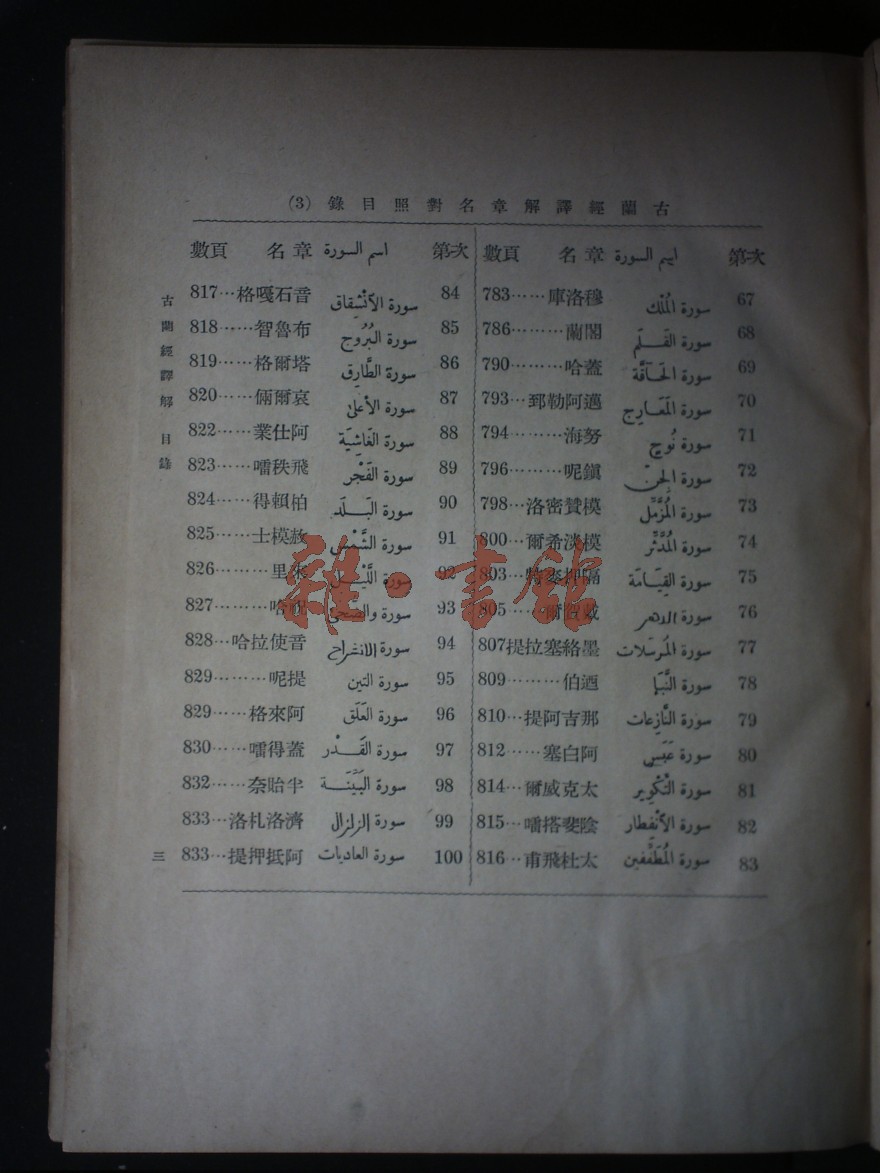 古蘭經譯解章名對照目錄 (3)
第次 اسم السورة 章名 頁數
67 سورة المُلْك 穆洛庫……783
68 سورة القَلَم 閣蘭………786
69 سورة الحَاقَّة 蓋哈………790
70 سورة المَعَارِج 邁阿勒郅…793
71 سورة نُوح 努海………794
72 سورة الجِنّ 鎮呢………796
73 سورة المُزَّمِّل 模贊密洛…798
74 سورة المُدَّثِّر 模淡希爾…800
75 سورة القِيَامَة 隔押麥特…803
76 سورة الدهر 戴賀爾……805
77 سورة المُرسَلات 墨絡塞拉提807
78 سورة النَّبَإ 迺伯………809
79 سورة النَّازِعات 那吉阿提…810
80 سورة عَبَسَ 阿白塞……812
81 سورة التَّكْوِير 太克威爾…814
82 سورة الأنْفِطار 陰斐搭嚕…815
83 سورة المُطَفِّفِين 太杜飛甫…816
第次 اسم السورة 章名 頁數
84 سورة الأنْشِقاق 音石嘎格…817
85 سورة البُرُوج 布魯智……818
86 سورة الطَّارِق 塔爾格……819
87 سورة الأعلىٰ 哀爾倆……820
88 سورة الغَاشِيَة 阿仕業……822
89 سورة الفَجْر 飛秩嚕……823
90 سورة البَلَد 柏賴得……824
91 سورة الشَّمْس 赦模士……825
92 سورة اللَّيْل 來里………826
93 سورة والضُّحى 祝哈………827
94 سورة الانشراح 音使拉哈…828
95 سورة التين 提呢………829
96 سورة العَلَق 阿來格……829
97 سورة القَدْر 蓋得嚕……830
98 سورة البَيِّنَة 半貽奈……832
99 سورة الزلزال 濟洛札洛…833
100 سورة العاديات 阿抵押提…833
古蘭經譯解 目錄
三
雜·書館